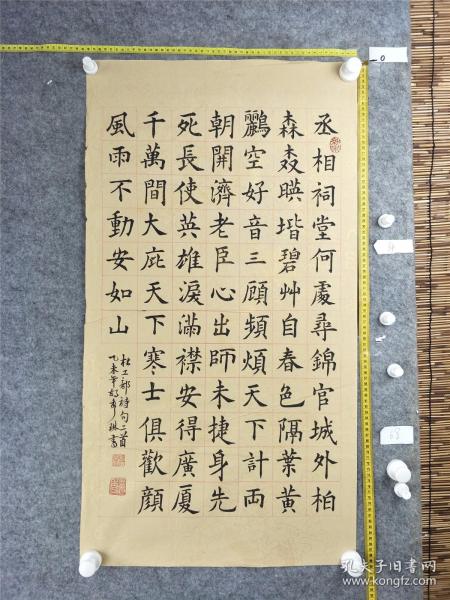 丞相祠堂何處尋錦官城外柏
森森暎堦碧艸自春色隔葉黃
鸝空好音三顧頻煩天下計両
朝開濟老臣心出師未捷身先
死長使英雄淚滿襟安得廣廈
千萬間大庇天下寒士俱歡顏
風雨不動安如山
杜工部詩句二首
乙未年 書
0
68
孔夫子旧书网
www.kongfz.com